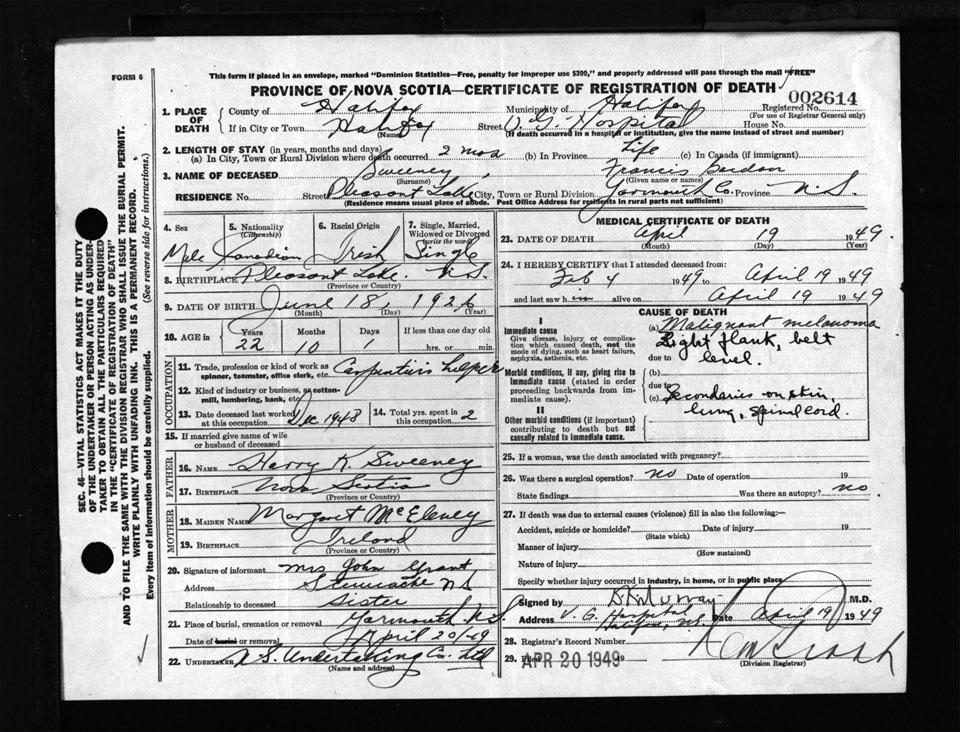 FORM 6
This form if placed in an envelope, marked "Dominion Statistics—Free, penalty for improper use $300," and properly addressed will pass through the mail "FREE"
PROVINCE OF NOVA SCOTIA—CERTIFICATE OF REGISTRATION OF DEATH
002614
1. PLACE OF DEATH
County of Halifax Municipality of Halifax Registered No.
(For use of Registrar General only)
If in City or Town Halifax Street V. G. Hospital House No.
(Name) (If death occurred in a hospital or institution, give the name instead of street and number)
2. LENGTH OF STAY (in years, months and days)
(a) In City, Town or Rural Division where death occurred 2 mos (b) In Province Life (c) In Canada (if immigrant)
3. NAME OF DECEASED Sweeney, Francis
(Surname) (Given name or names)
RESIDENCE No. Street Pleasant Lake City, Town or Rural Division Yarmouth Co. Province N.S.
(Residence means usual place of abode. Post Office Address for residents in rural parts not sufficient)
4. Sex 5. Nationality (Citizenship) 6. Racial Origin 7. Single, Married, Widowed or Divorced (write the word)
Male Canadian Irish Single
8. BIRTHPLACE Pleasant Lake. N.S.
(Province or Country)
9. DATE OF BIRTH June 18, 1926
(Month) (Day) (Year)
10. AGE in Years Months Days If less than one day old
22 10 1 hrs. or min.
OCCUPATION
11. Trade, profession or kind of work as spinner, teamster, office clerk, etc. Carpentiers helper
12. Kind of industry or business, as cotton-mill, lumbering, bank, etc.
13. Date deceased last worked at this occupation Dec 1948 14. Total yrs. spent in this occupation 2
15. If married give name of wife or husband of deceased
FATHER
16. NAME Harry K. Sweeney
17. BIRTHPLACE Nova Scotia
(Province or Country)
MOTHER
18. MAIDEN NAME Margaret McEleney
19. BIRTHPLACE Ireland
(Province or Country)
20. Signature of informant Mrs John Grant
Address Stewiacke N S
Relationship to deceased Sister
21. Place of burial, cremation or removal Yarmouth, N.S.
Date of burial or removal April 20/49
22. UNDERTAKER N S. Undertaking Co. Ltd
(Name and address)
MEDICAL CERTIFICATE OF DEATH
23. DATE OF DEATH April 19 1949
(Month) (Day) (Year)
24. I HEREBY CERTIFY that I attended deceased from:
Feb 4 1949 to April 19 1949
and last saw him alive on April 19 1949
CAUSE OF DEATH
I
Immediate cause
Give disease, injury or complication which caused death, not the mode of dying, such as heart failure, asphyxia, asthenia, etc.
(a) Malignant melanoma
Right flank, belt
due to level.
Morbid conditions, if any, giving rise to immediate cause (stated in order proceeding backwards from immediate cause).
(b)
due to
(c) Secondaries on skin,
lung, spinal cord.
II
Other morbid conditions (if important) contributing to death but not causally related to immediate cause.
25. If a woman, was the death associated with pregnancy?
26. Was there a surgical operation? no Date of operation 19
State findings Was there an autopsy? no
27. If death was due to external causes (violence) fill in also the following:—
Accident, suicide or homicide? Date of injury 19
(State which)
Manner of injury
(How sustained)
Nature of injury
Specify whether injury occurred in industry, in home, or in public place
Signed by Murray M.D.
Address V. G. Hospital Halifax, N.S. Date April 19 1949
28. Registrar's Record Number
29. Filed APR 20 1949 19
(Division Registrar)
SEC. 46—VITAL STATISTICS ACT MAKES IT THE DUTY
OF THE UNDERTAKER OR PERSON ACTING AS UNDER-
TAKER TO OBTAIN ALL THE PARTICULARS REQUIRED
IN THE "CERTIFICATE OF REGISTRATION OF DEATH"
AND TO FILE THE SAME WITH THE DIVISION REGISTRAR WHO SHALL ISSUE THE BURIAL PERMIT.
WRITE PLAINLY WITH UNFADING INK. THIS IS A PERMANENT RECORD.
Every item of information should be carefully supplied. (See reverse side for instructions.)